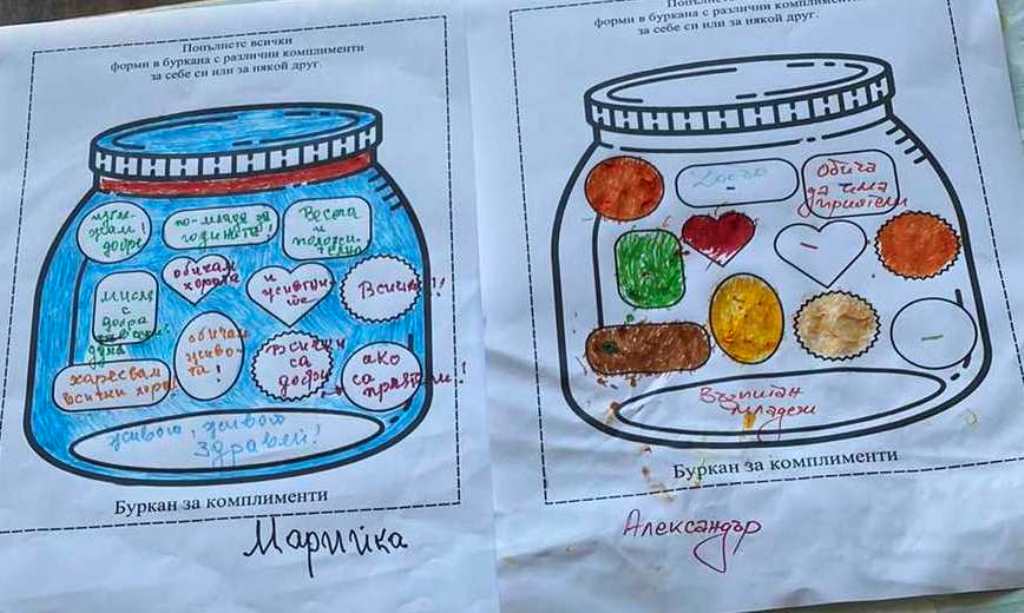 Попълнете всички
форми в буркана с различни комплименти
за себе си или за някой друг.
изглe-
ждам!
добре
по-млада за
годините!
Весела
и
положи-
телна
мисля
с
добра
душа
обичам
хората
и
животни-
те
Всички!!
харесвам
всички хора!
обичам
живо-
та!
Всички
са
добри
ако
са
приятели!
живот, живот
здравей!
Буркан за комплименти
Марийка
Попълнете всички
форми в буркана с различни комплименти
за себе си или за някой друг.
Обича
да има
приятели
Възпитан
младеж
Буркан за комплименти
Александър